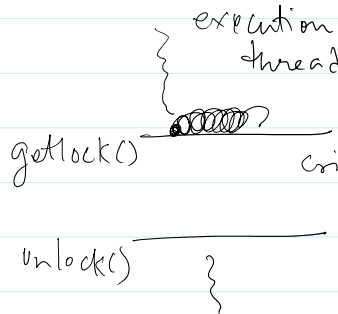 execution
thread
getlock()
cri
unlock()